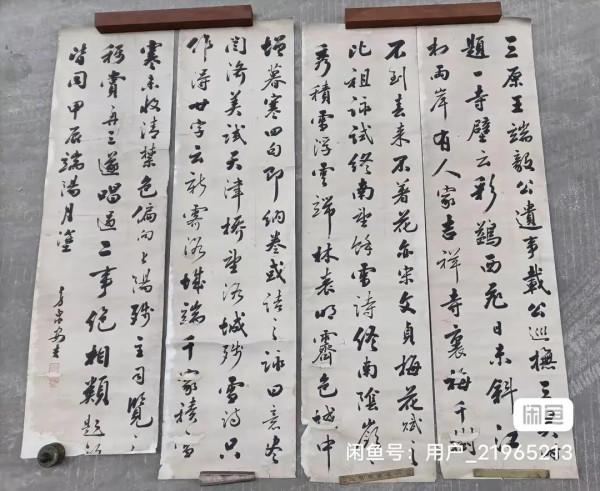 三原王端毅公遺事載公巡撫三
題一寺壁云彩鷁西飛日未斜江
村兩岸有人家吉祥寺裏梅千樹
不到春来不著花亦宋文貞梅花賦之
比祖詠試終南望餘雪詩終南陰嶺
秀積雪浮雲端林表明霽色城中
增暮寒四句即納卷或詰之詠曰意尽
閻濟美試天津橋望洛城殘雪詩只
作得廿字云新霽洛城端千家積雪
寒未收清禁色偏向上陽殘主司覽之
稱賞再三遂唱過二事絕相類題
皆同甲辰端陽月塗
闲鱼
闲鱼号：用户_21965213